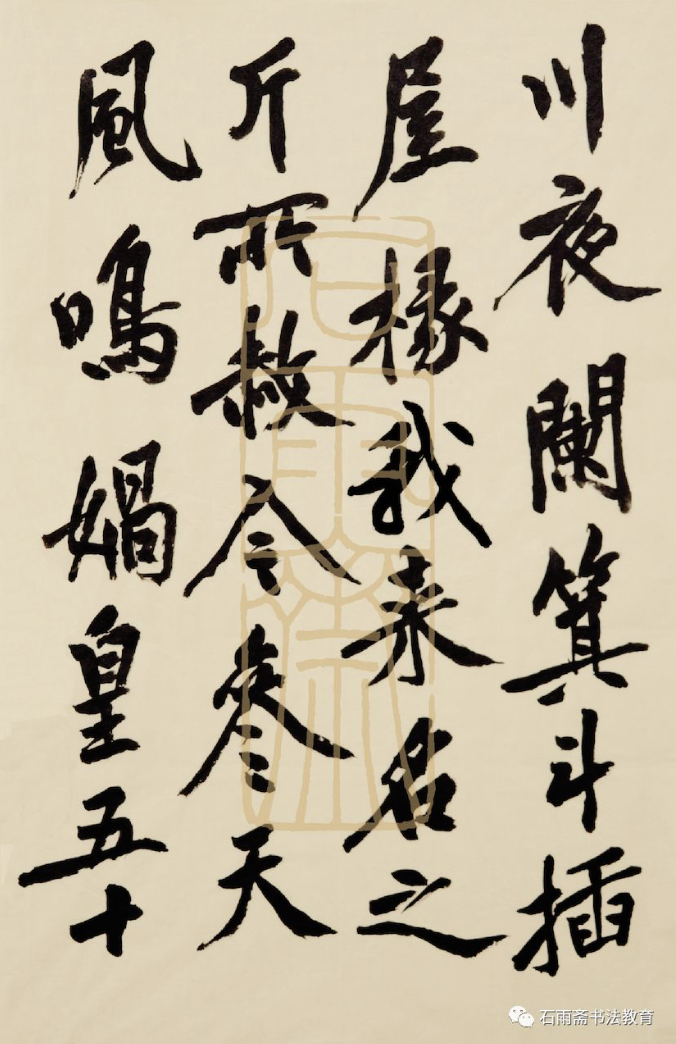 川夜闌箕斗插
屋椽我来名之
斤所赦今參天
風鳴媧皇五十
石雨斋
石雨斋书法教育